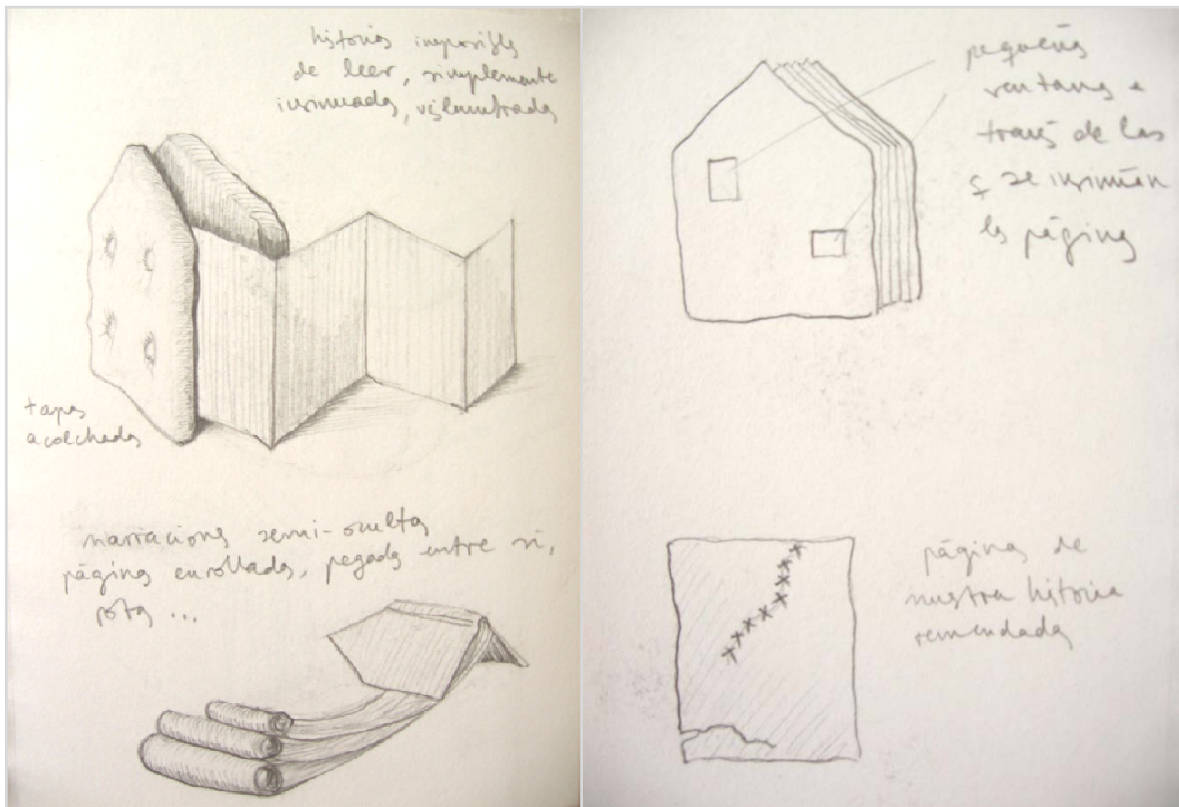 historias imposibles
de leer, simplemente
insinuadas, vislumbradas
tapas
acolchadas
narraciones semi-ocultas
páginas enrolladas, pegadas entre sí,
rotas ...
pequeñas
ventanas a
través de las
q se insinúan
las páginas
páginas de
nuestra historia
remendadas